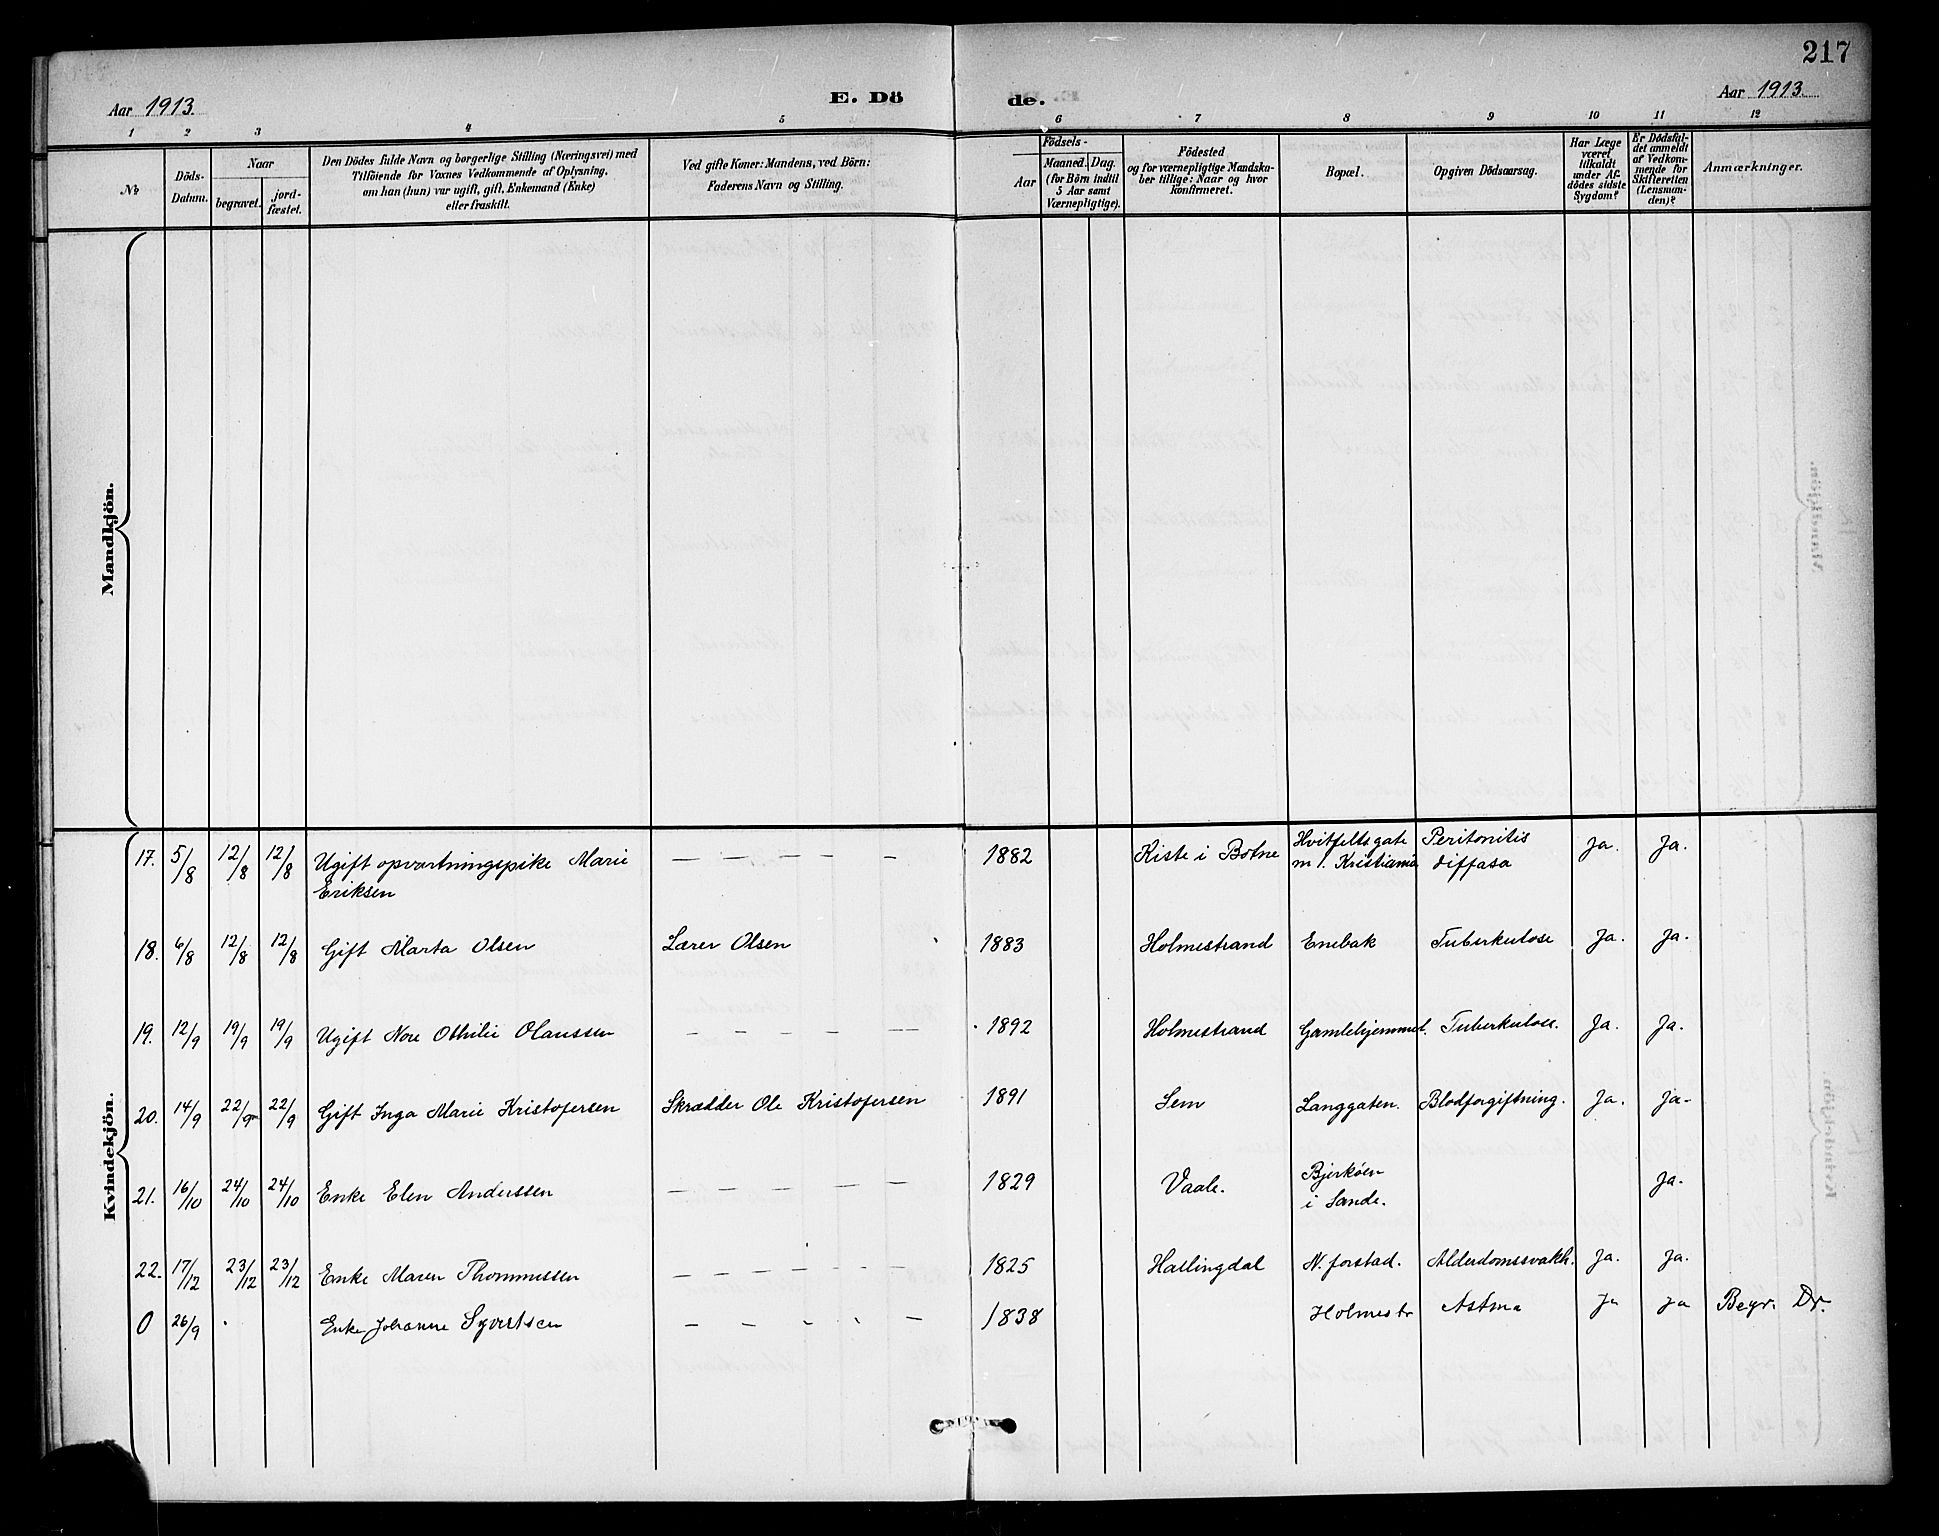 217
Aar 1913.
E. Dö
de.
Aar 1913.
1 2 3 4 5 6 7 8 9 10 11 12
No
Döds-
Datum.
Naar
begravet.
jord-
fæstet.
Den Dödes fulde Navn og borgerlige Stilling (Næringsvei) med
Tilföiende for Voxnes Vedkommende af Oplysning,
om han (hun) var ugift, gift, Enkemand (Enke)
eller fraskilt.
Ved gifte Koner: Mandens, ved Börn:
Faderens Navn og Stilling.
Födsels-
Aar
Maaned. Dag.
(for Börn indtil
5 Aar samt
Værnepligtige).
Födested
og for værnepligtige Mandska-
ber tillige: Naar og hvor
konfirmeret.
Bopæl.
Opgiven Dödsaarsag.
Har Læge
været
tilkaldt
under Af-
dödes sidste
Sygdom?
Er Dödsfal-
det anmeldt
af Vedkom-
mende for
Skifteretten
(Lensman-
den)?
Anmærkninger.
Mandkjön.
Kvindekjön.
17. 5/8 12/8 12/8 Ugift opvartningspike Marie
Eriksen
— — — — — 1882 Kiste i Botne
Hvitfeltsgate
m 1. Kristiania
Peritonitis
diffusa
Ja. Ja.
18. 6/8 12/8 12/8 Gift Marta Olsen Lærer Olsen 1883 Holmestrand Enebak Tuberkulose Ja. Ja.
19. 12/9 19/9 19/9 Ugift Nore Othilie Olaussen — — — — — 1892 Holmestrand Gamlehjemmet. Tuberkulose. Ja. Ja.
20. 14/9 22/9 22/9 Gift Inga Marie Kristofersen Skrædder Ole Kristofersen 1891 Sem Langgaten. Blodforgiftning. Ja. Ja.
21. 16/10 24/10 24/10 Enke Elen Anderssen — — — — — 1829 Vaale.
Bjerköen
i Sande.
Ja.
22. 17/12 23/12 23/12 Enke Maren Thommessen — — — — — 1825 Hallingdal N. forstad. Alderdomssvakh. Ja. Ja.
0 26/9 Enke Johanne Syvertsen — — — — — 1838 Holmestr Astma Ja Ja Begr. Dr.